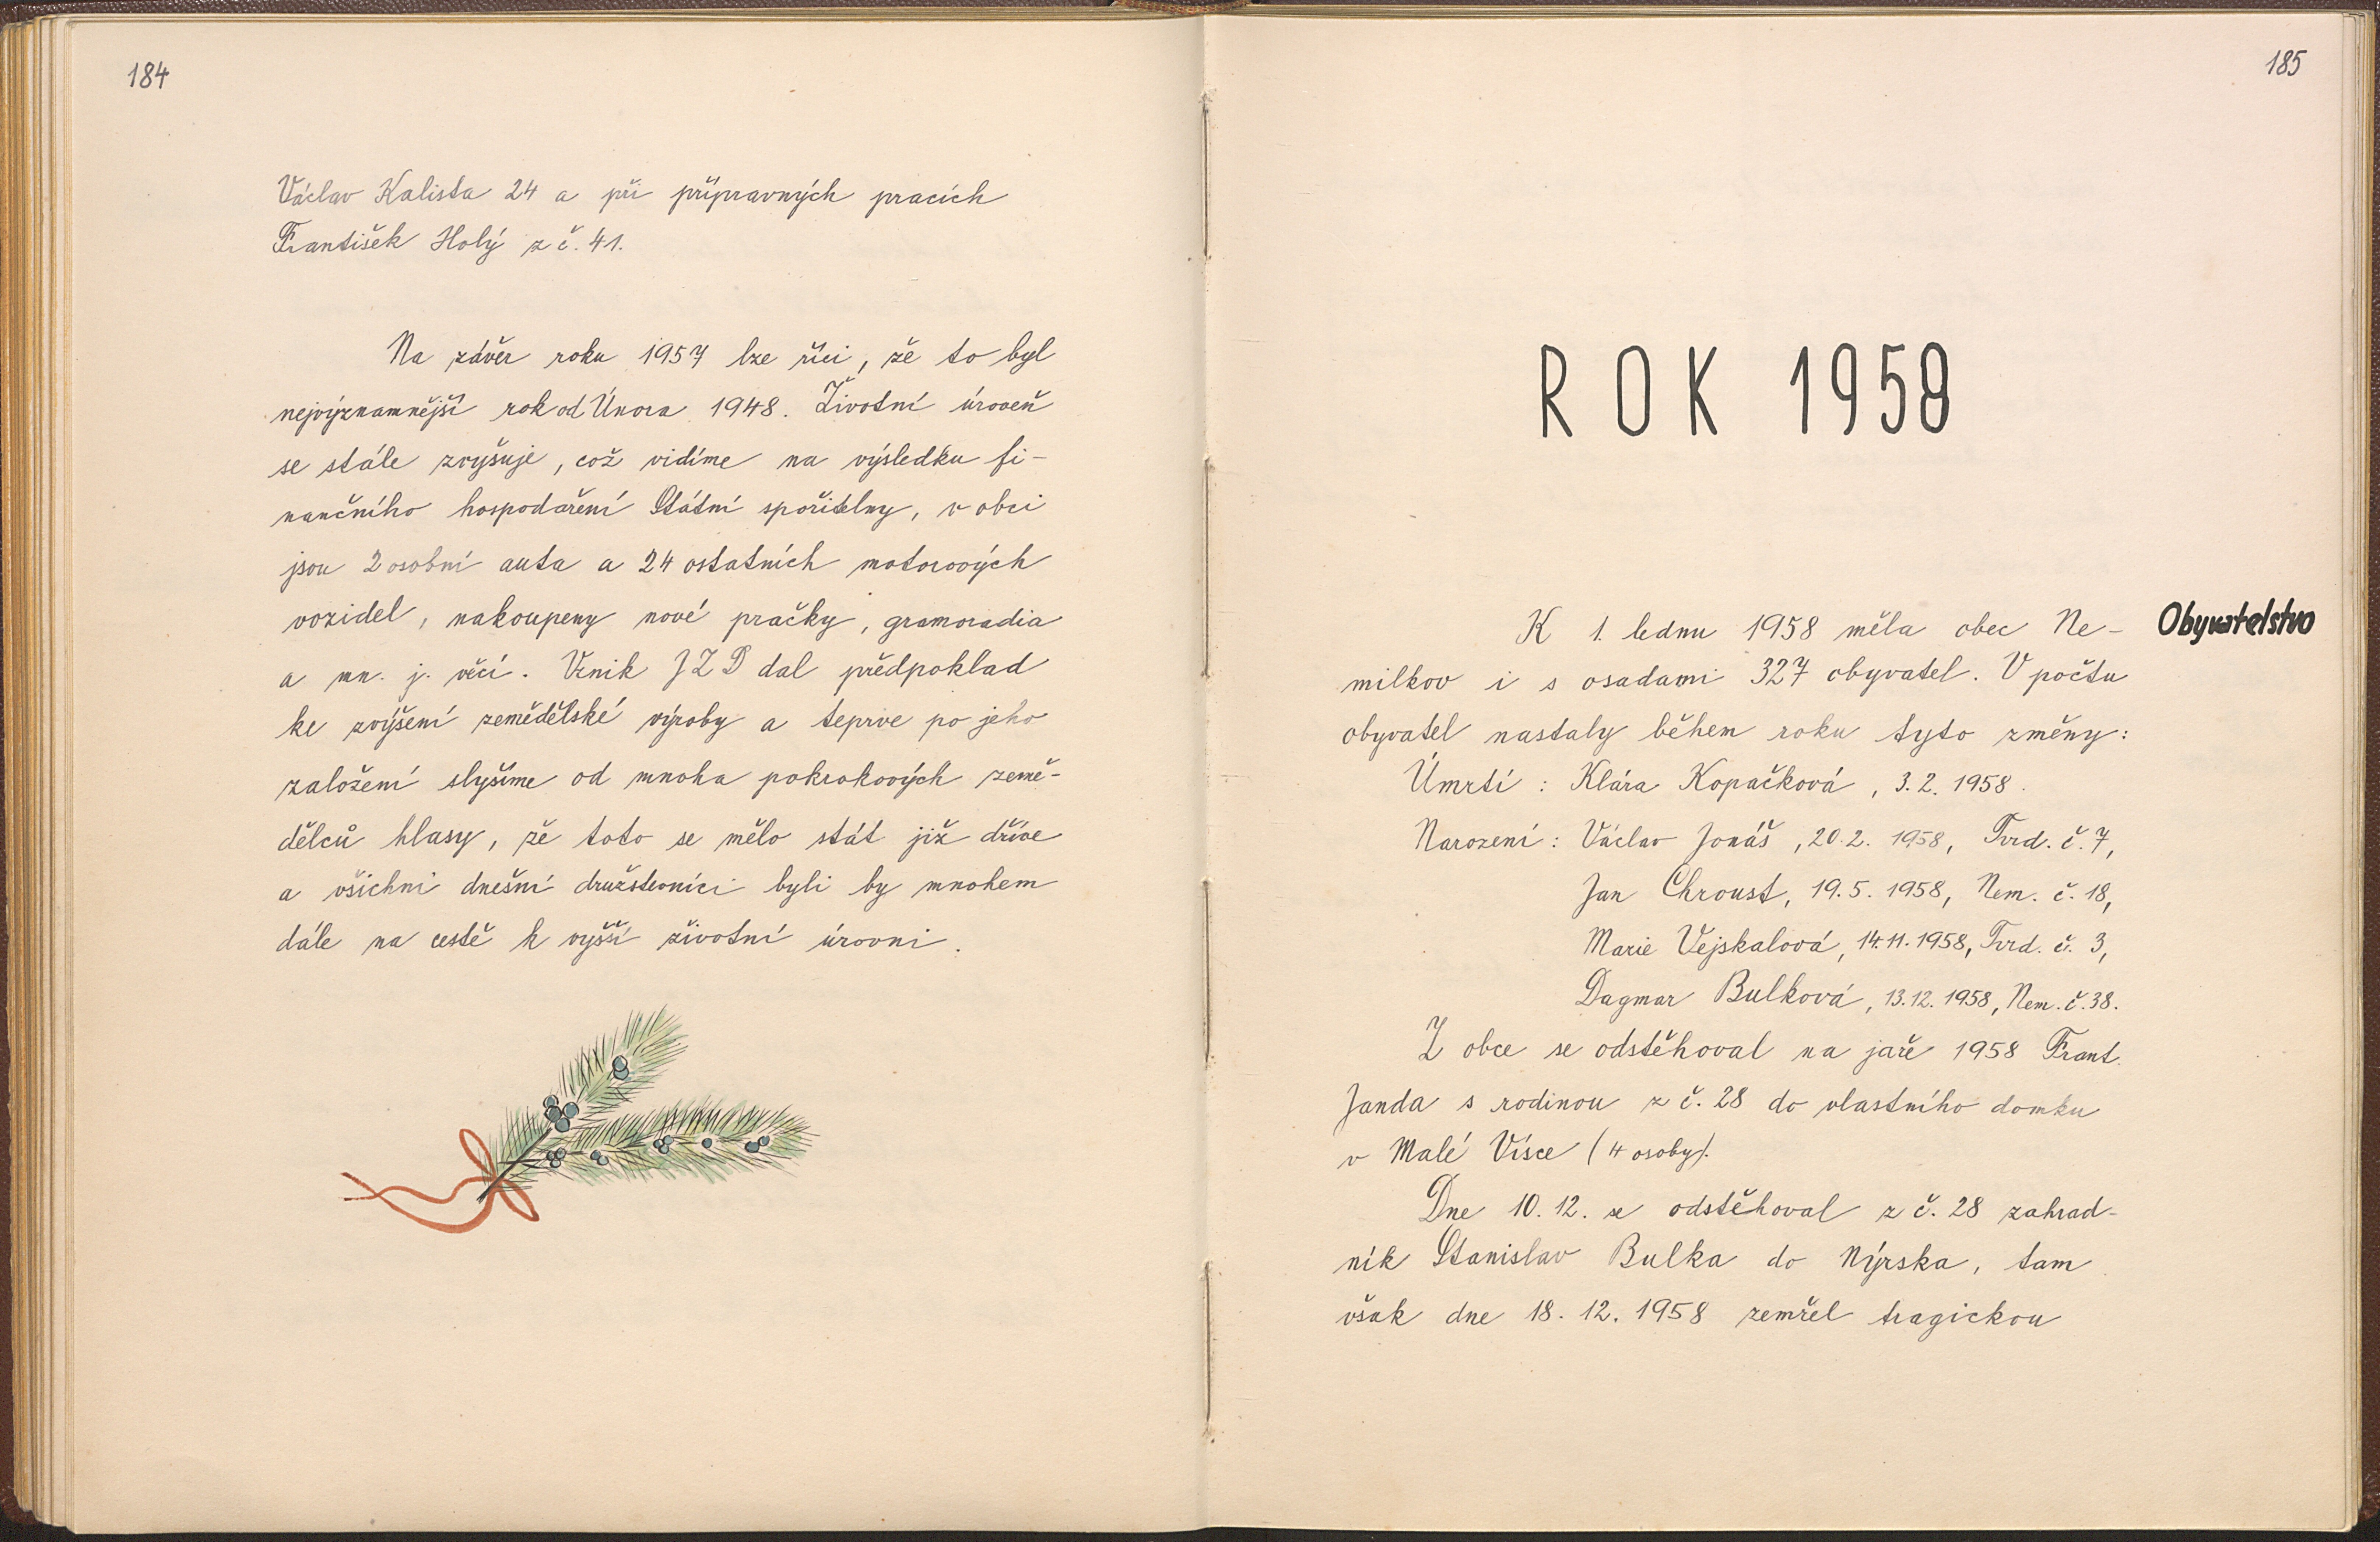 184
Václav Kalista 24 a při přípravných pracích
František Holý z č. 41.
Na závěr roku 1957 lze říci, že to byl
nejvýznamnější rok od Února 1948. Životní úroveň
se stále zvyšuje, což vidíme na výsledku fi-
nančního hospodaření Státní spořitelny, v obci
jsou 2 osobní auta a 24 ostatních motorových
vozidel, nakoupeny nové pračky, gramoradia
a mn. j. věcí. Vznik JZD dal předpoklad
ke zvýšení zemědělské výroby a teprve po jeho
založení slyšíme od mnoha pokrokových země-
dělců hlasy, že toto se mělo stát již dříve
a všichni dnešní družstevníci byli by mnohem
dále na cestě k vyšší životní úrovni.
185
ROK 1958
Obyvatelstvo
K 1. lednu 1958 měla obec Ne-
milkov i s osadami 327 obyvatel. V počtu
obyvatel nastaly během roku tyto změny:
Úmrtí: Klára Kopačková, 3. 2. 1958.
Narození: Václav Jonáš, 20. 2. 1958, Tvrd. č. 7,
Jan Chroust, 19. 5. 1958, Nem. č. 18,
Marie Vejskalová, 14. 11. 1958, Tvrd. č. 3,
Dagmar Bulková, 13. 12. 1958, Nem. č. 38.
Z obce se odstěhoval na jaře 1958 Frant.
Janda s rodinou z č. 28 do vlastního domku
v Malé Vísce (4 osoby).
Dne 10. 12. se odstěhoval z č. 28 zahrad-
ník Stanislav Bulka do Nýrska, tam
však dne 18. 12. 1958 zemřel tragickou